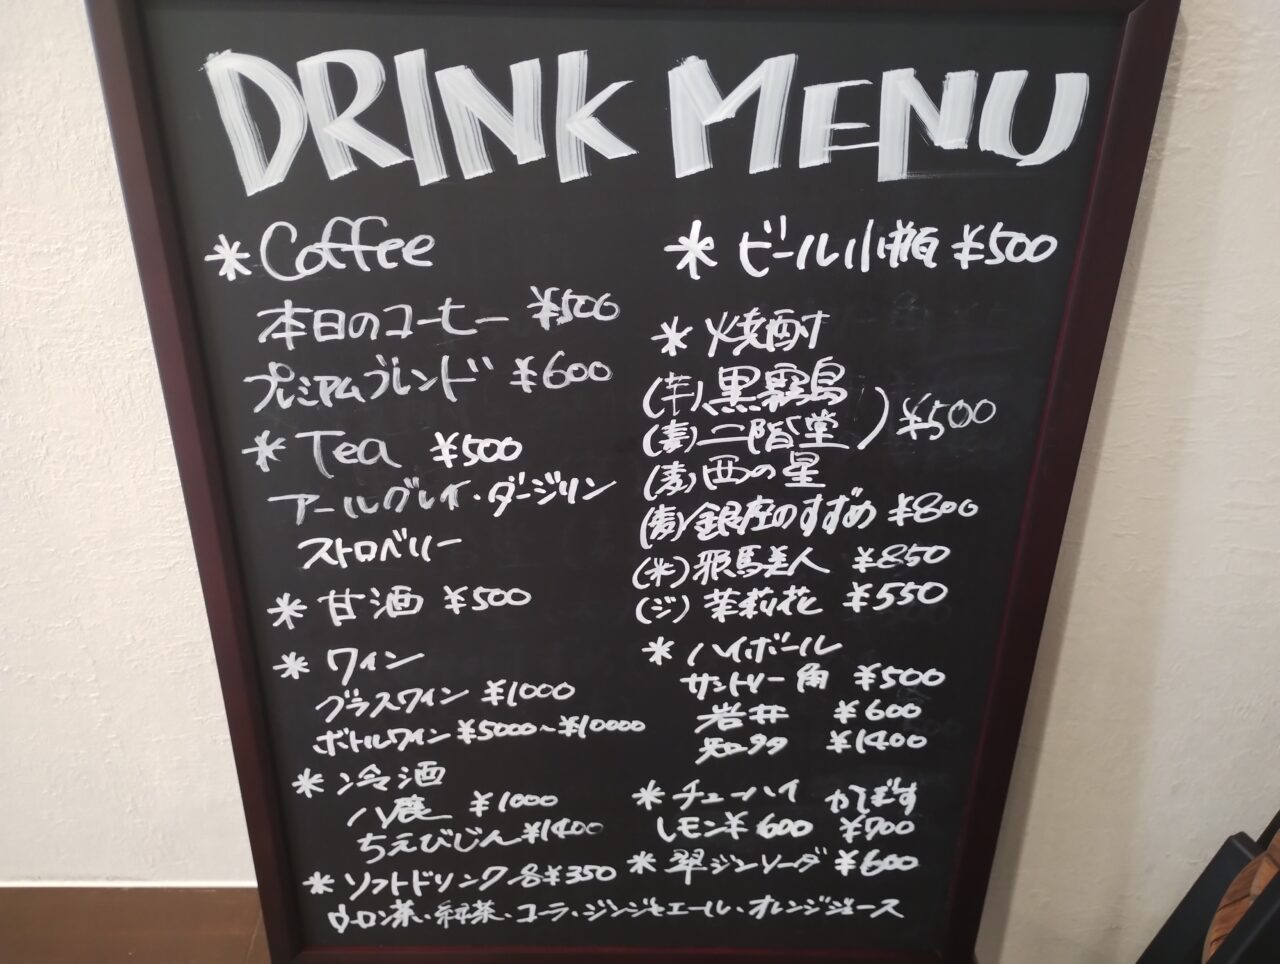 DRINK MENU
* Coffee
本日のコーヒー ¥500
プレミアムブレンド ¥600
* Tea ¥500
アールグレイ・ダージリン
ストロベリー
* 甘酒 ¥500
* ワイン
グラスワイン ¥1000
ボトルワイン ¥5000~¥10000
* 冷酒
八鹿 ¥1000
ちえびじん ¥1400
* ソフトドリンク 各¥350
ウーロン茶・紅茶・コーラ・ジンジャエール・オレンジジュース
* ビール小瓶 ¥500
* 焼酎
(芋)黒霧島
(麦)二階堂 ) ¥500
(麦)西の星
(麦)銀座のすずめ ¥800
(米)邪馬美人 ¥850
(ジ)茉莉花 ¥550
* ハイボール
サントリー角 ¥500
岩井 ¥600
知多 ¥1400
* チューハイ かぼす
レモン ¥600 ¥700
* 翠ジンソーダ ¥600